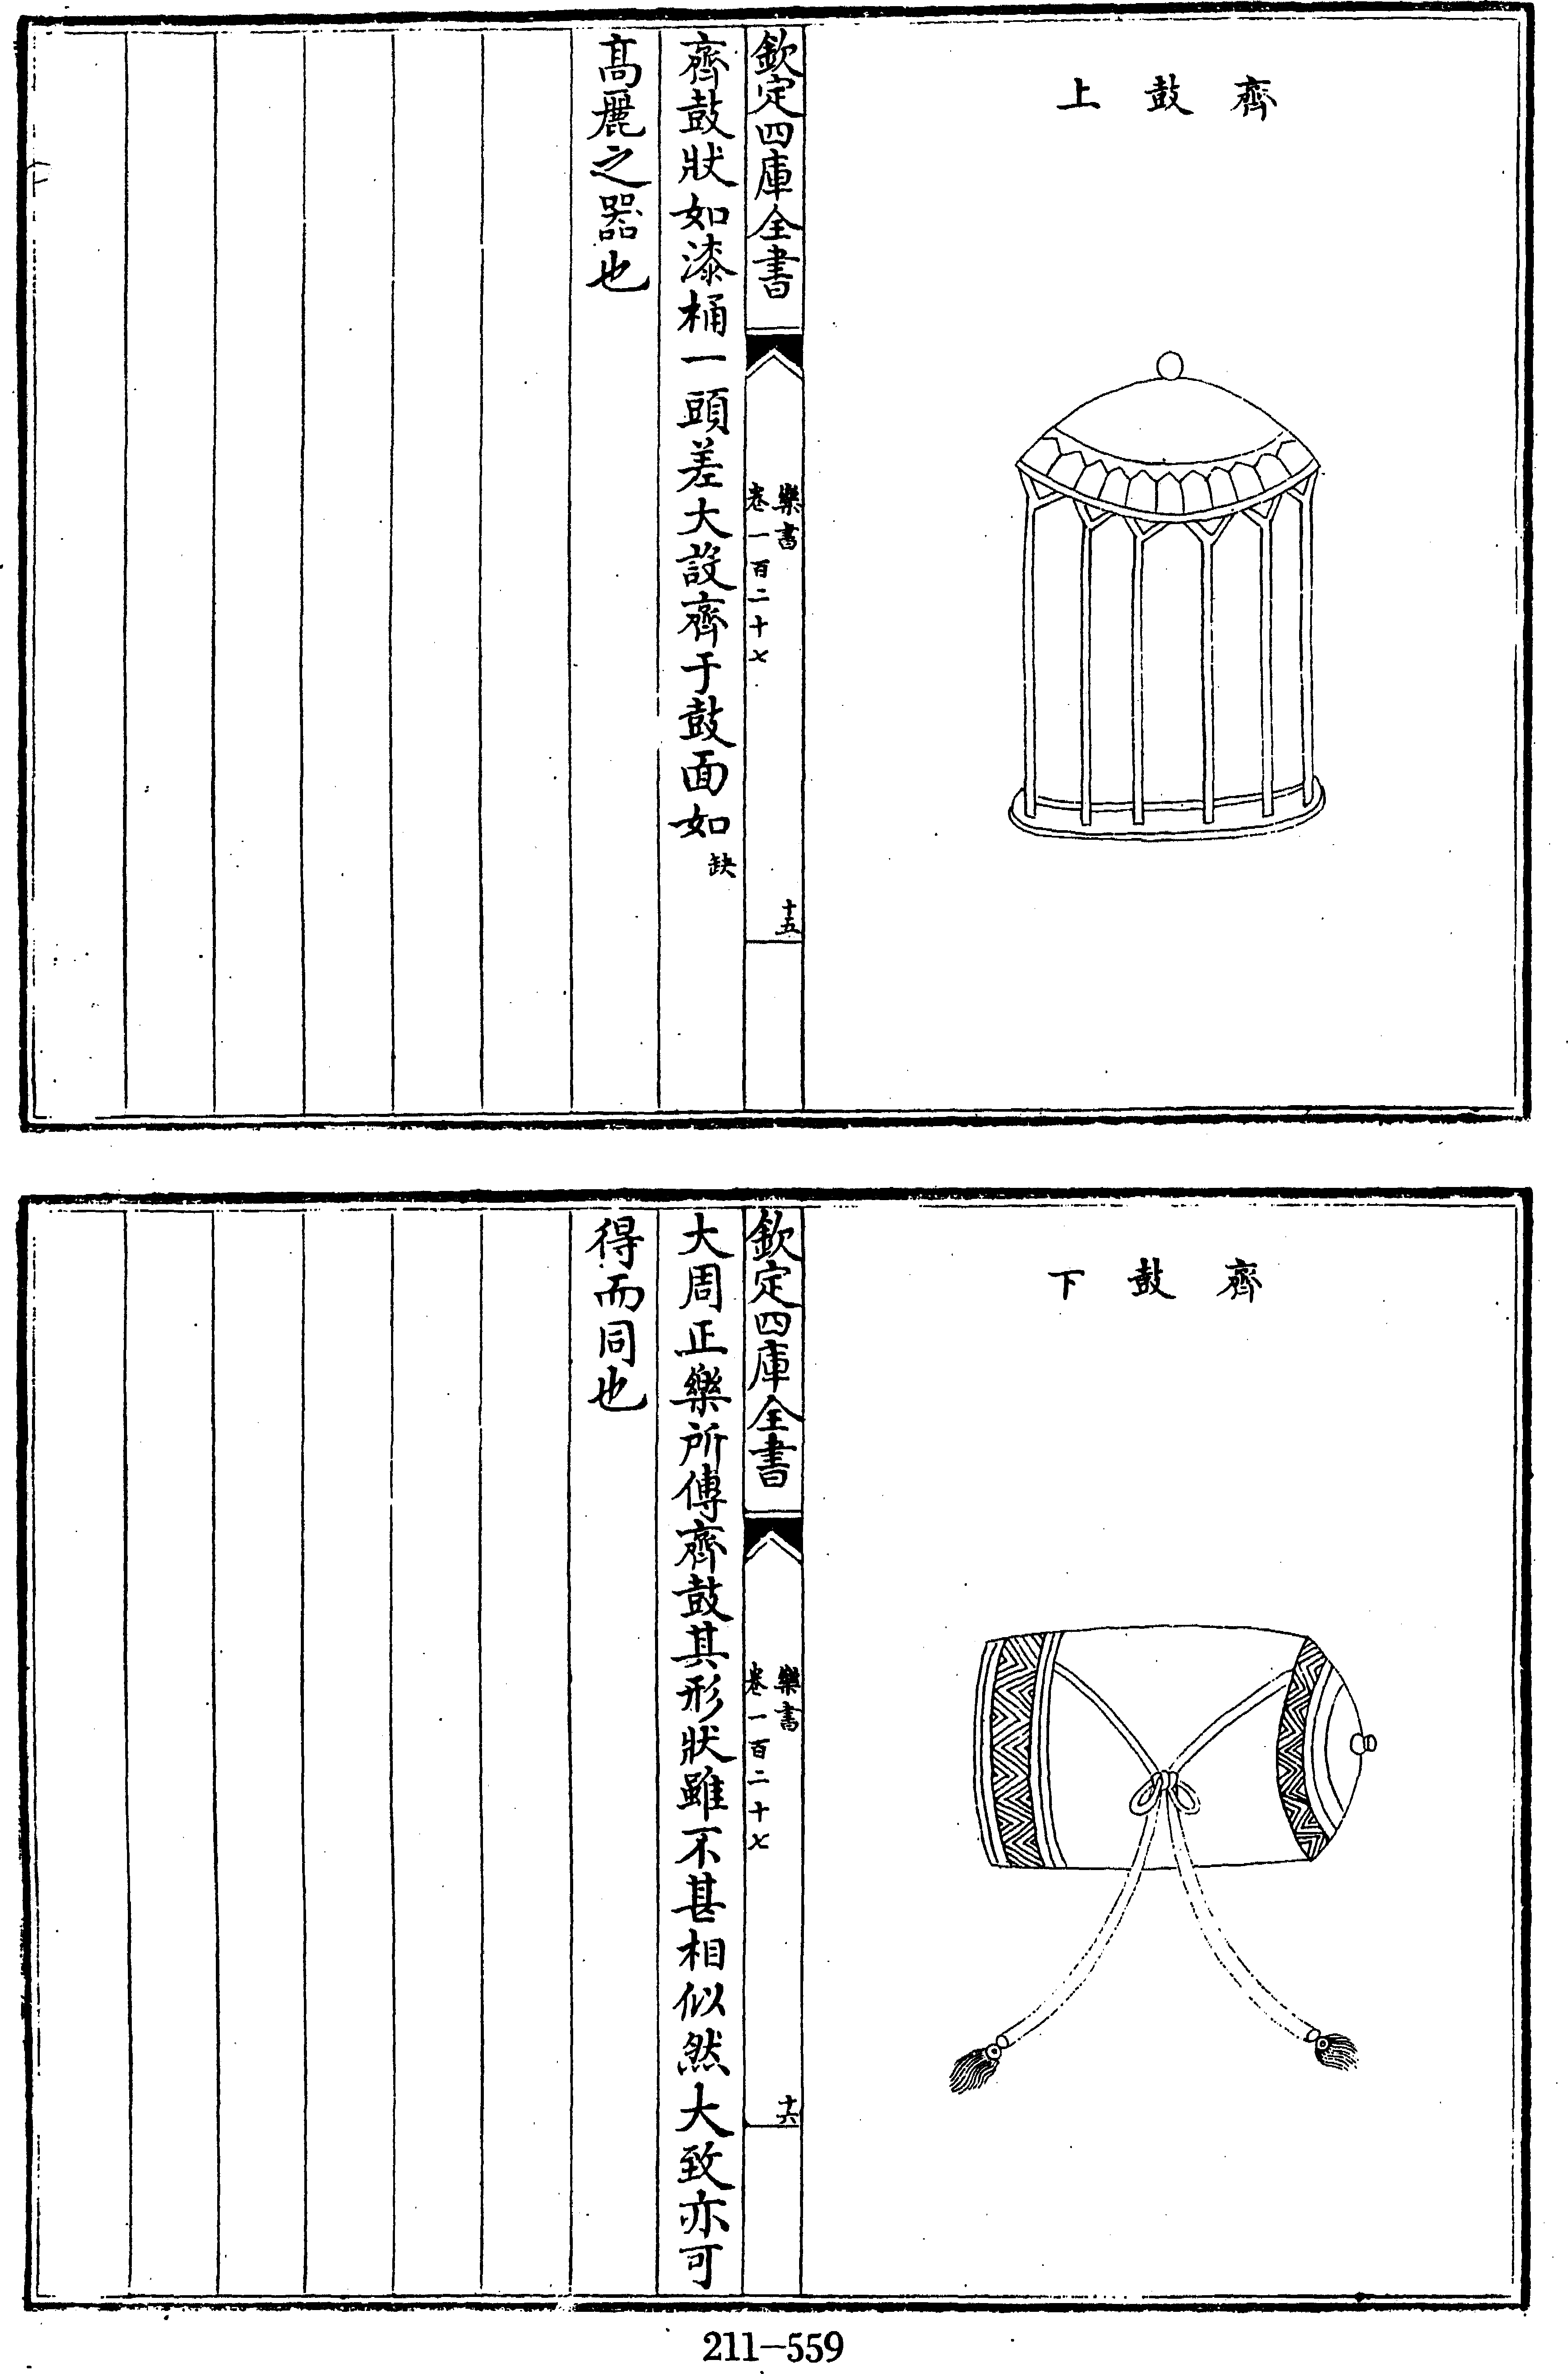 齊鼓上
欽定四庫全書
樂書
卷一百二十七
十五
齊鼓狀如漆桶一頭差大設齊于鼓面如缺
高麗之器也
齊鼓下
欽定四庫全書
樂書
卷一百二十七
十六
大周正樂所傳齊鼓其形狀雖不甚相似然大致亦可
得而同也
211-559